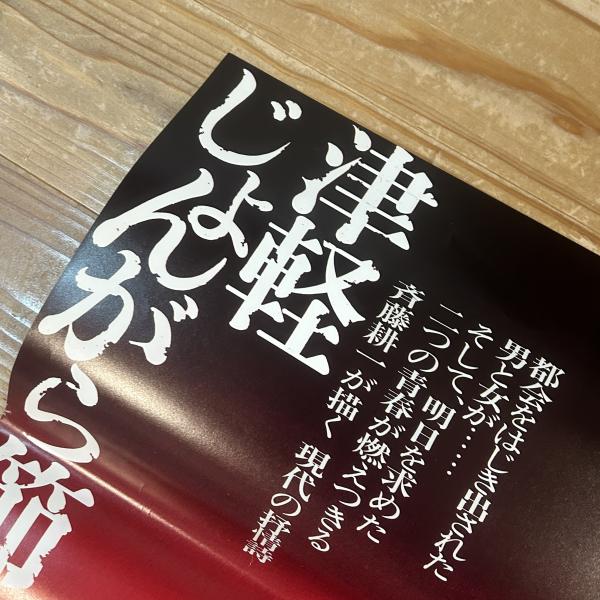 津軽
じょんがら節
都会をはじき出された
男と女が……
そして、明日を求めた
二つの青春が燃えつきる
斉藤耕一が描く 現代の抒情詩